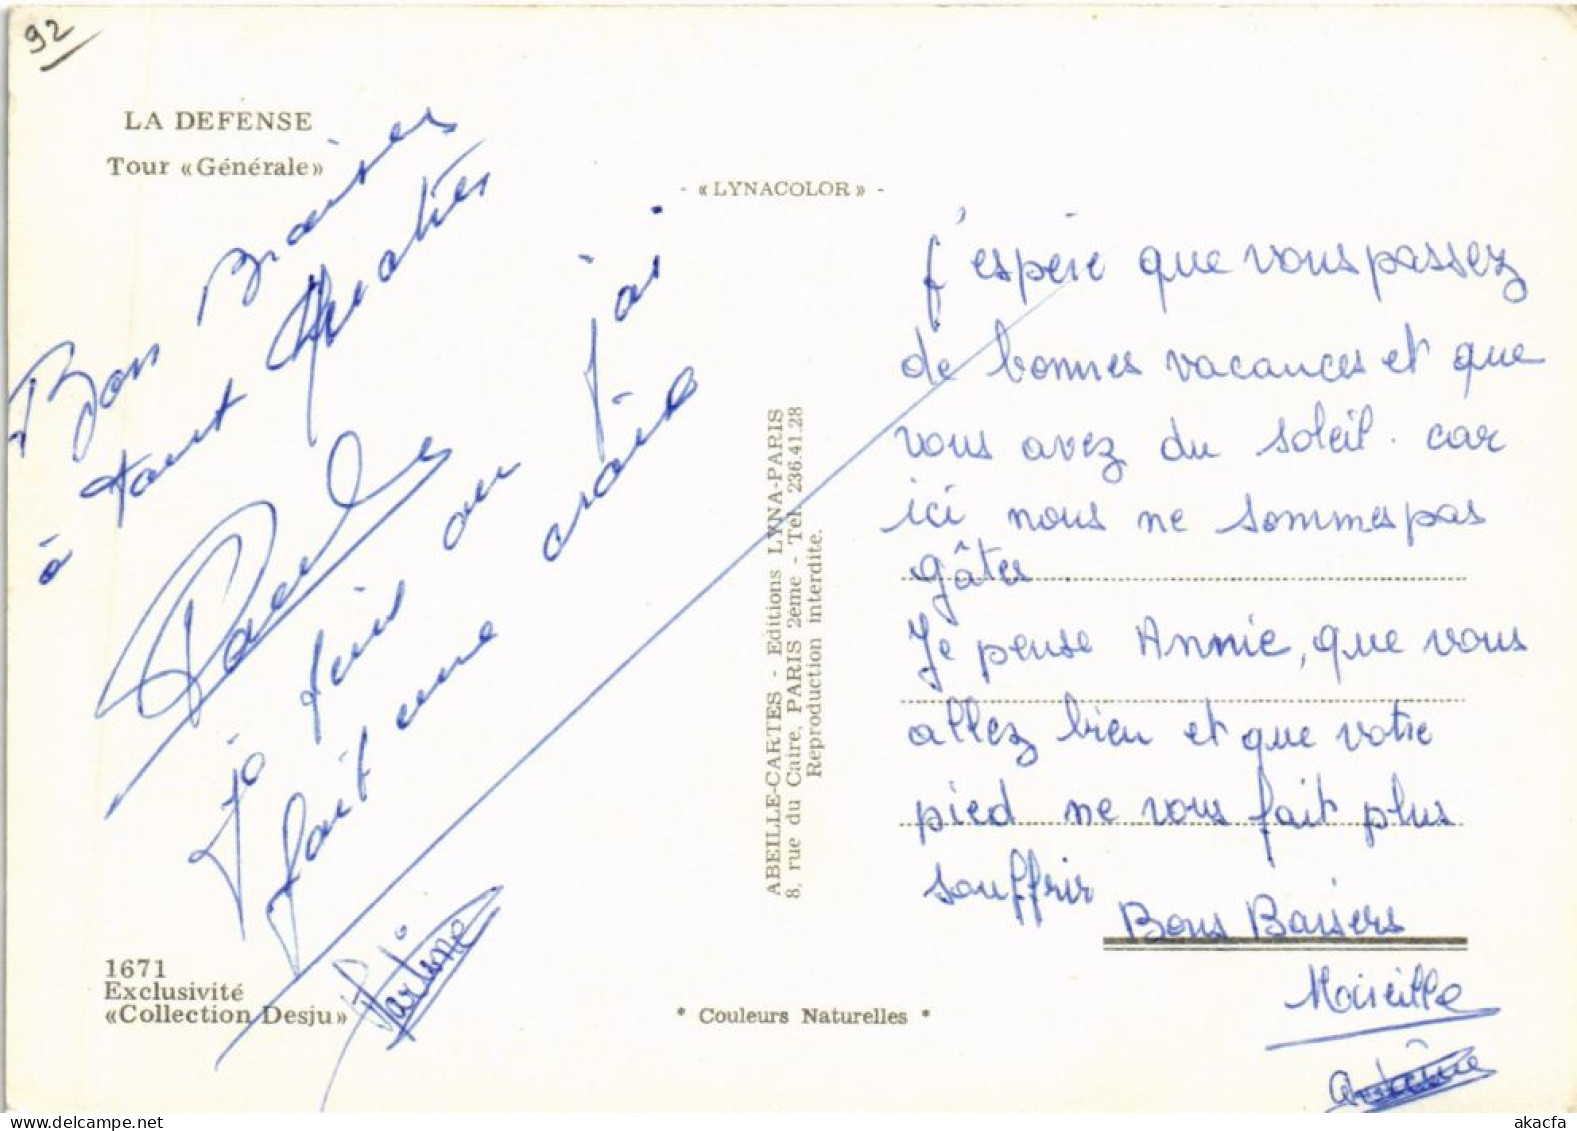 92
LA DEFENSE
Tour «Générale»
- «LYNACOLOR» -
Bons Baisers
à tout
Paul
fait une
Martine
1671
Exclusivité
«Collection Desju»
ABEILLE-CARTES - Editions LYNA-PARIS
8, rue du Caire, PARIS 2eme - Tel. 236.41.28
Reproduction interdite.
* Couleurs Naturelles *
J'espère que vous passez
de bonnes vacances et que
vous avez du soleil. car
ici nous ne sommes pas
gâtes
Je pense Annie, que vous
allez bien et que votre
pied ne vous fait plus
souffrir
Bons Baisers
Mireille
akacfa
delcampe.net